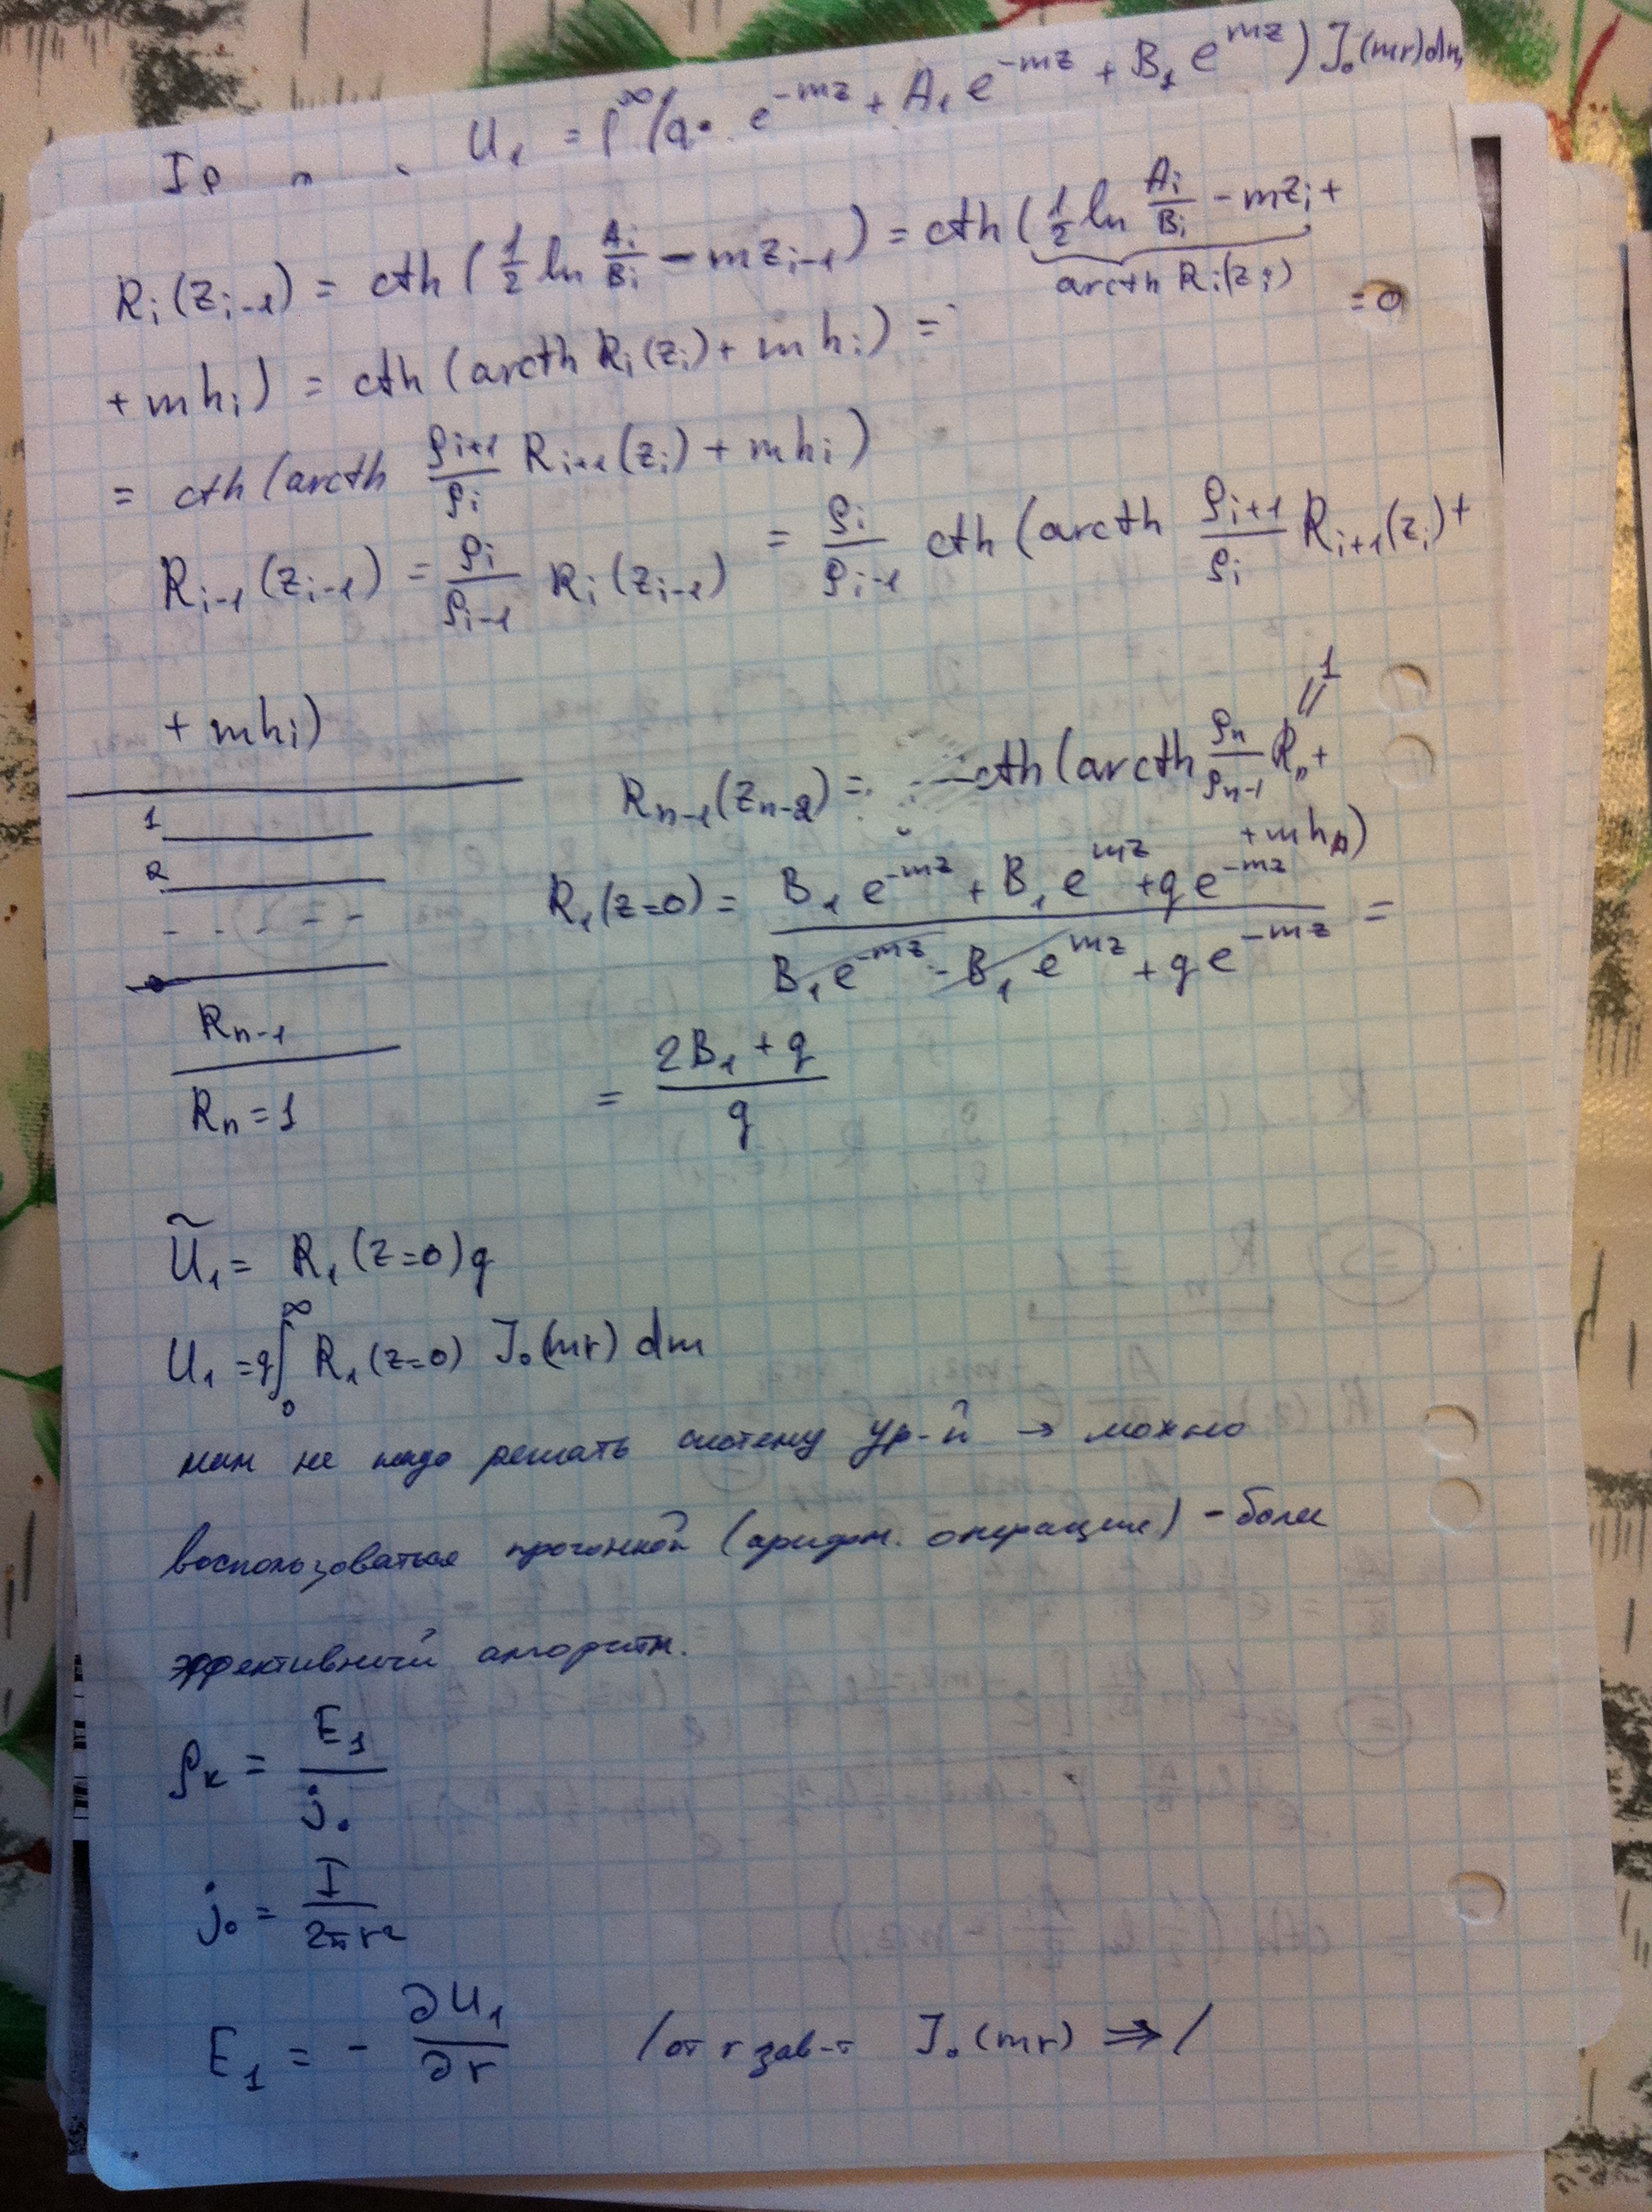 U₁ = ∫^∞ (q· e^{-mz} + A₁ e^{-mz} + B₁ e^{mz}) J₀(mr)dm
Iρ
R_i(z_{i-1}) = cth(½ ln A_i/B_i − mz_{i-1}) = cth(½ ln A_i/B_i − mz_i +
arcth R_i(z_i)
= 0
+ mh_i) = cth(arcth R_i(z_i) + mh_i) =
= cth(arcth ρ_{i+1}/ρ_i R_{i+1}(z_i) + mh_i)
R_{i-1}(z_{i-1}) = ρ_i/ρ_{i-1} R_i(z_{i-1}) = ρ_i/ρ_{i-1} cth(arcth ρ_{i+1}/ρ_i R_{i+1}(z_i) +
+ mh_i)
1
R_{n-1}(z_{n-2}) = cth(arcth ρ_n/ρ_{n-1} R_n +
+ mh_n)
1
2
R₁(z=0) = (B₁ e^{-mz} + B₁ e^{mz} + q e^{-mz}) / (B₁ e^{-mz} − B₁ e^{mz} + q e^{-mz}) =
R_{n-1}
R_n = 1
= (2B₁ + q)/q
Ũ₁ = R₁(z=0)q
U₁ = q∫₀^∞ R₁(z=0) J₀(mr) dm
нам не надо решать систему ур-й → можно
воспользоваться прогонкой (арифм. операции) - более
эффективный алгоритм.
ρ_к = E₁/j₀
j₀ = I/2πr²
E₁ = − ∂U₁/∂r /от r зав-т J₀(mr) ⇒/